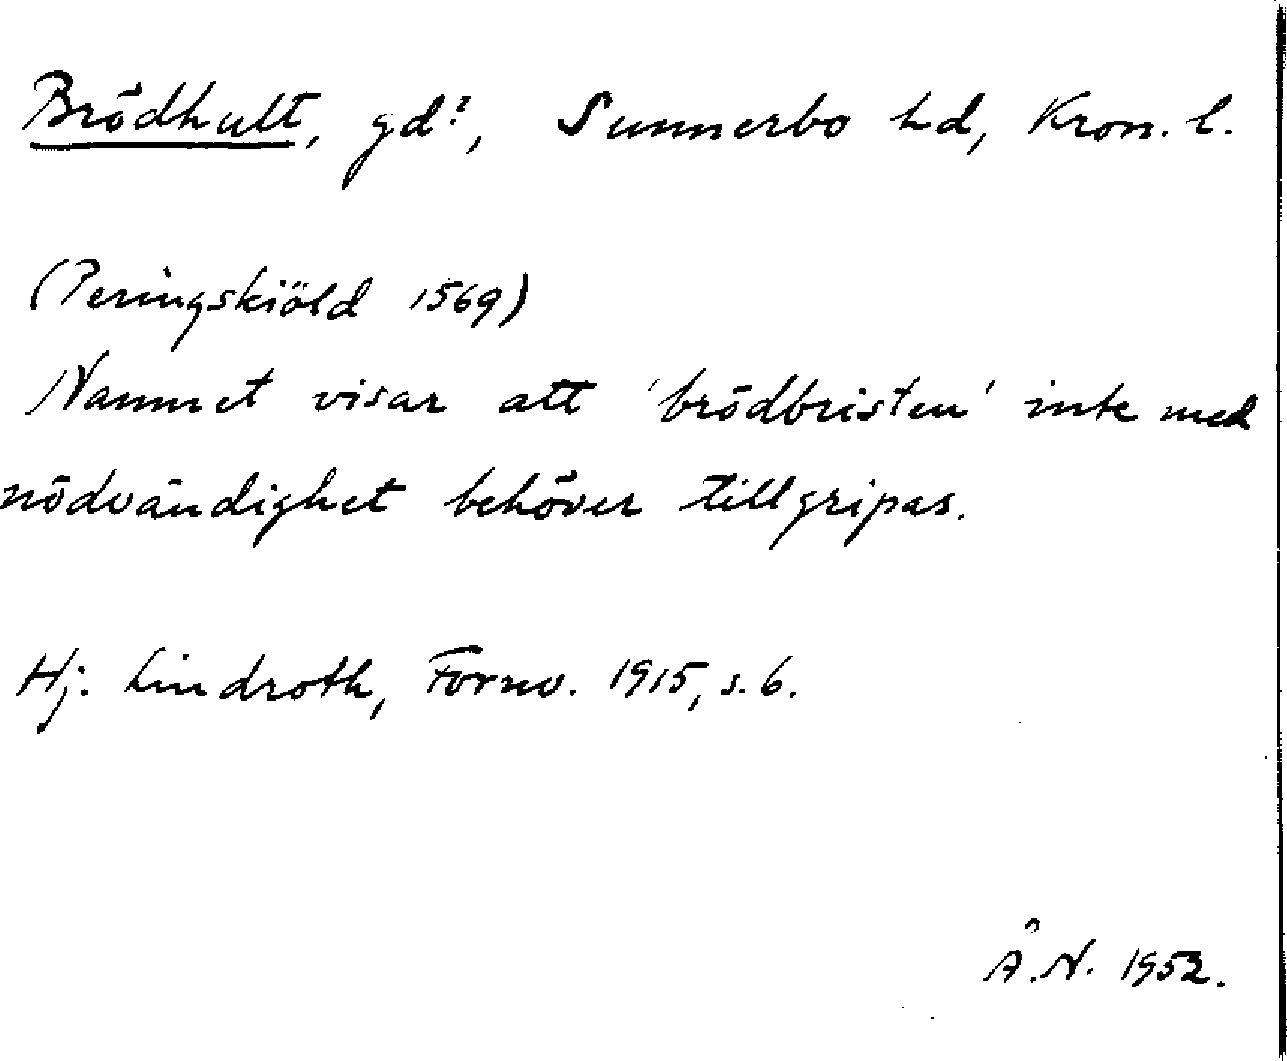 Brödhult, gd?, Sunnerbo hd, Kron. l.
(Peringskiöld 1569)
Namnet visar att 'brödbristen' inte med
nödvändighet behöver tillgripas.
Hj. Lindroth, Fornv. 1915, s. 6.
Å.N. 1952.